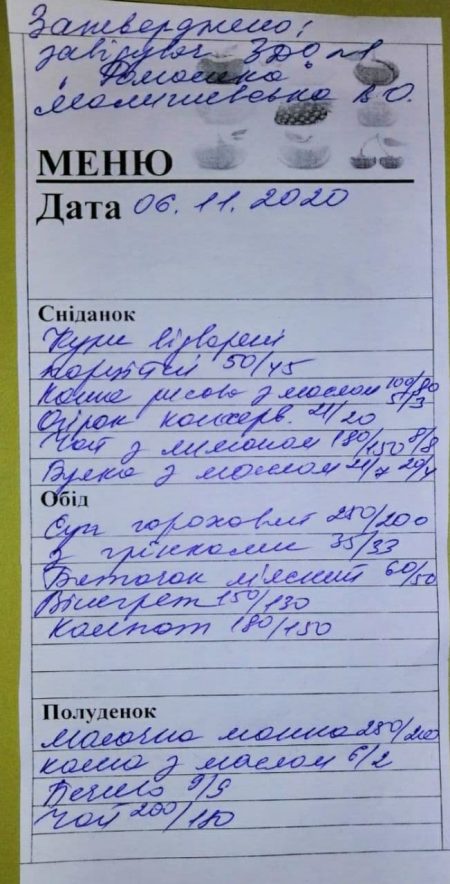 Затверджено:
завідувач ЗДО №1
"Ромашка"
Малишевська В.О.
МЕНЮ
Дата 06.11.2020
Сніданок
Кури відварені
порційні 50/45
Каша рисова з маслом 100/80 5/3
Огірок консерв. 21/20
Чай з лимоном 180/150 8/8
Булка з маслом 21/7 20/4
Обід
Суп гороховий 250/200
з грінками 35/33
Биточок м'ясний 60/50
Вінегрет 150/130
Компот 180/150
Полуденок
Молочна манна 250/200
каша з маслом 6/2
Печиво 9/9
Чай 200/180